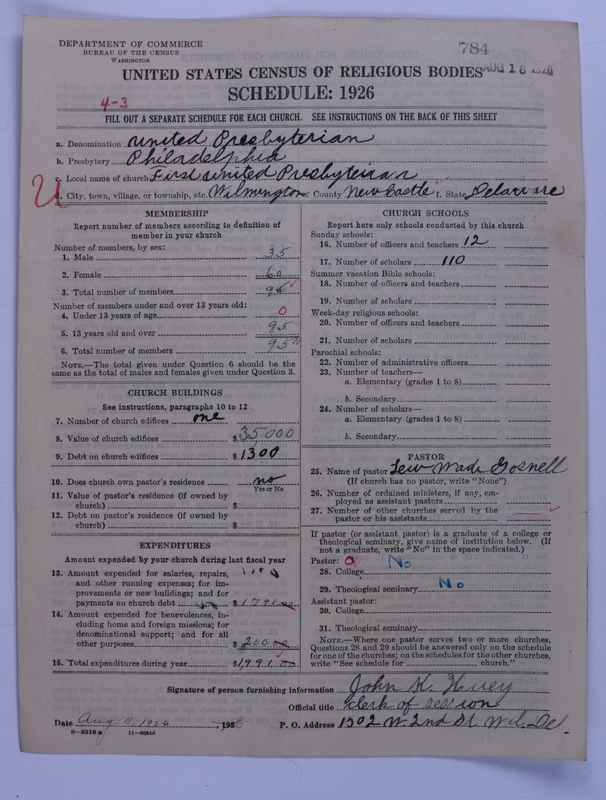 DEPARTMENT OF COMMERCE
BUREAU OF THE CENSUS
WASHINGTON
784
AUG 16 1926
UNITED STATES CENSUS OF RELIGIOUS BODIES
SCHEDULE: 1926
4-3
FILL OUT A SEPARATE SCHEDULE FOR EACH CHURCH. SEE INSTRUCTIONS ON THE BACK OF THIS SHEET
a. Denomination United Presbyterian
b. Presbytery Philadelphia
c. Local name of church First United Presbyterian
d. City, town, village, or township, etc. Wilmington e. County New Castle f. State Delaware
MEMBERSHIP
Report number of members according to definition of
member in your church
Number of members, by sex:
1. Male 35
2. Female 60
3. Total number of members 95
Number of members under and over 13 years old:
4. Under 13 years of age 0
5. 13 years old and over 95
6. Total number of members 95
NOTE.—The total given under Question 6 should be the
same as the total of males and females given under Question 3.
CHURCH BUILDINGS
See instructions, paragraphs 10 to 12
7. Number of church edifices one
8. Value of church edifices $35000
9. Debt on church edifices $1300
10. Does church own pastor's residence no
Yes or No
11. Value of pastor's residence (if owned by
church) $
12. Debt on pastor's residence (if owned by
church) $
EXPENDITURES
Amount expended by your church during last fiscal year
13. Amount expended for salaries, repairs,
and other running expenses; for im-
provements or new buildings; and for
payments on church debt $1791.00
14. Amount expended for benevolences, in-
cluding home and foreign missions; for
denominational support; and for all
other purposes $200.00
15. Total expenditures during year $1991.00
CHURCH SCHOOLS
Report here only schools conducted by this church
Sunday schools:
16. Number of officers and teachers 12
17. Number of scholars 110
Summer vacation Bible schools:
18. Number of officers and teachers
19. Number of scholars
Week-day religious schools:
20. Number of officers and teachers
21. Number of scholars
Parochial schools:
22. Number of administrative officers
23. Number of teachers—
a. Elementary (grades 1 to 8)
b. Secondary
24. Number of scholars—
a. Elementary (grades 1 to 8)
b. Secondary
PASTOR
25. Name of pastor Lew Wade Gosnell
(If church has no pastor, write "None")
26. Number of ordained ministers, if any, em-
ployed as assistant pastors
27. Number of other churches served by the
pastor or his assistants
If pastor (or assistant pastor) is a graduate of a college or
theological seminary, give name of institution below. (If
not a graduate, write "No" in the space indicated.)
Pastor: 0
28. College No
29. Theological seminary No
Assistant pastor:
30. College
31. Theological seminary
NOTE.—Where one pastor serves two or more churches,
Questions 28 and 29 should be answered only on the schedule
for one of the churches; on the schedules for the other churches,
write "See schedule for church."
Signature of person furnishing information John K. Huey
Official title Clerk of session
Date Aug. 11, 1926, 1926 P. O. Address 1502 W. 2nd St. Wil. Del.
8—5518 a 11—9864d